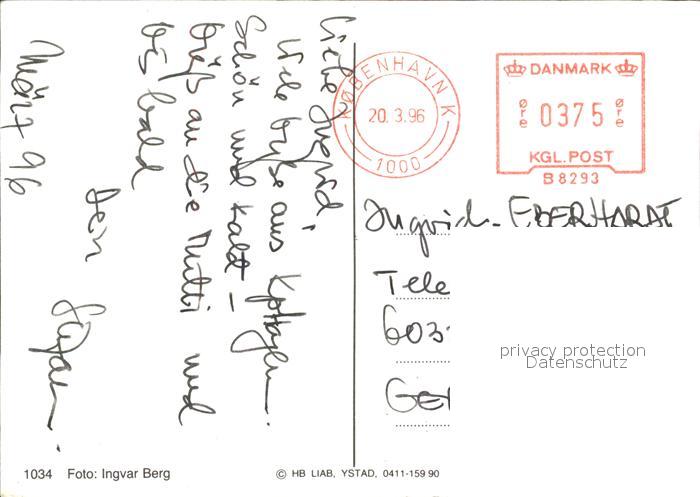 Liebe Ingrid,
Viele Grüße aus Kphagen.
Schön und kalt –
Grüße an die Mutti und
bis bald
Dein
März 96
KØBENHAVN K
20.3.96
1000
DANMARK
øre 0375 øre
KGL.POST
B 8293
Ingrid EBERHARDT
Tele
603
GER
privacy protection
Datenschutz
1034 Foto: Ingvar Berg
© HB LIAB, YSTAD, 0411-159 90